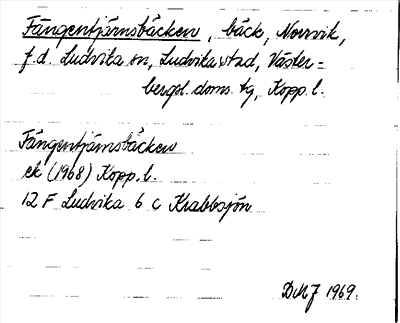 Fängentjärnsbäcken, bäck, Norrvik,
f.d. Ludvika sn, Ludvika stad, Väster=
bergsl. doms. tg, Kopp. l.
Fängentjärnsbäcken
ek (1968) Kopp. l.
12 F Ludvika 6 c Krabbsjön
DMJ 1969.